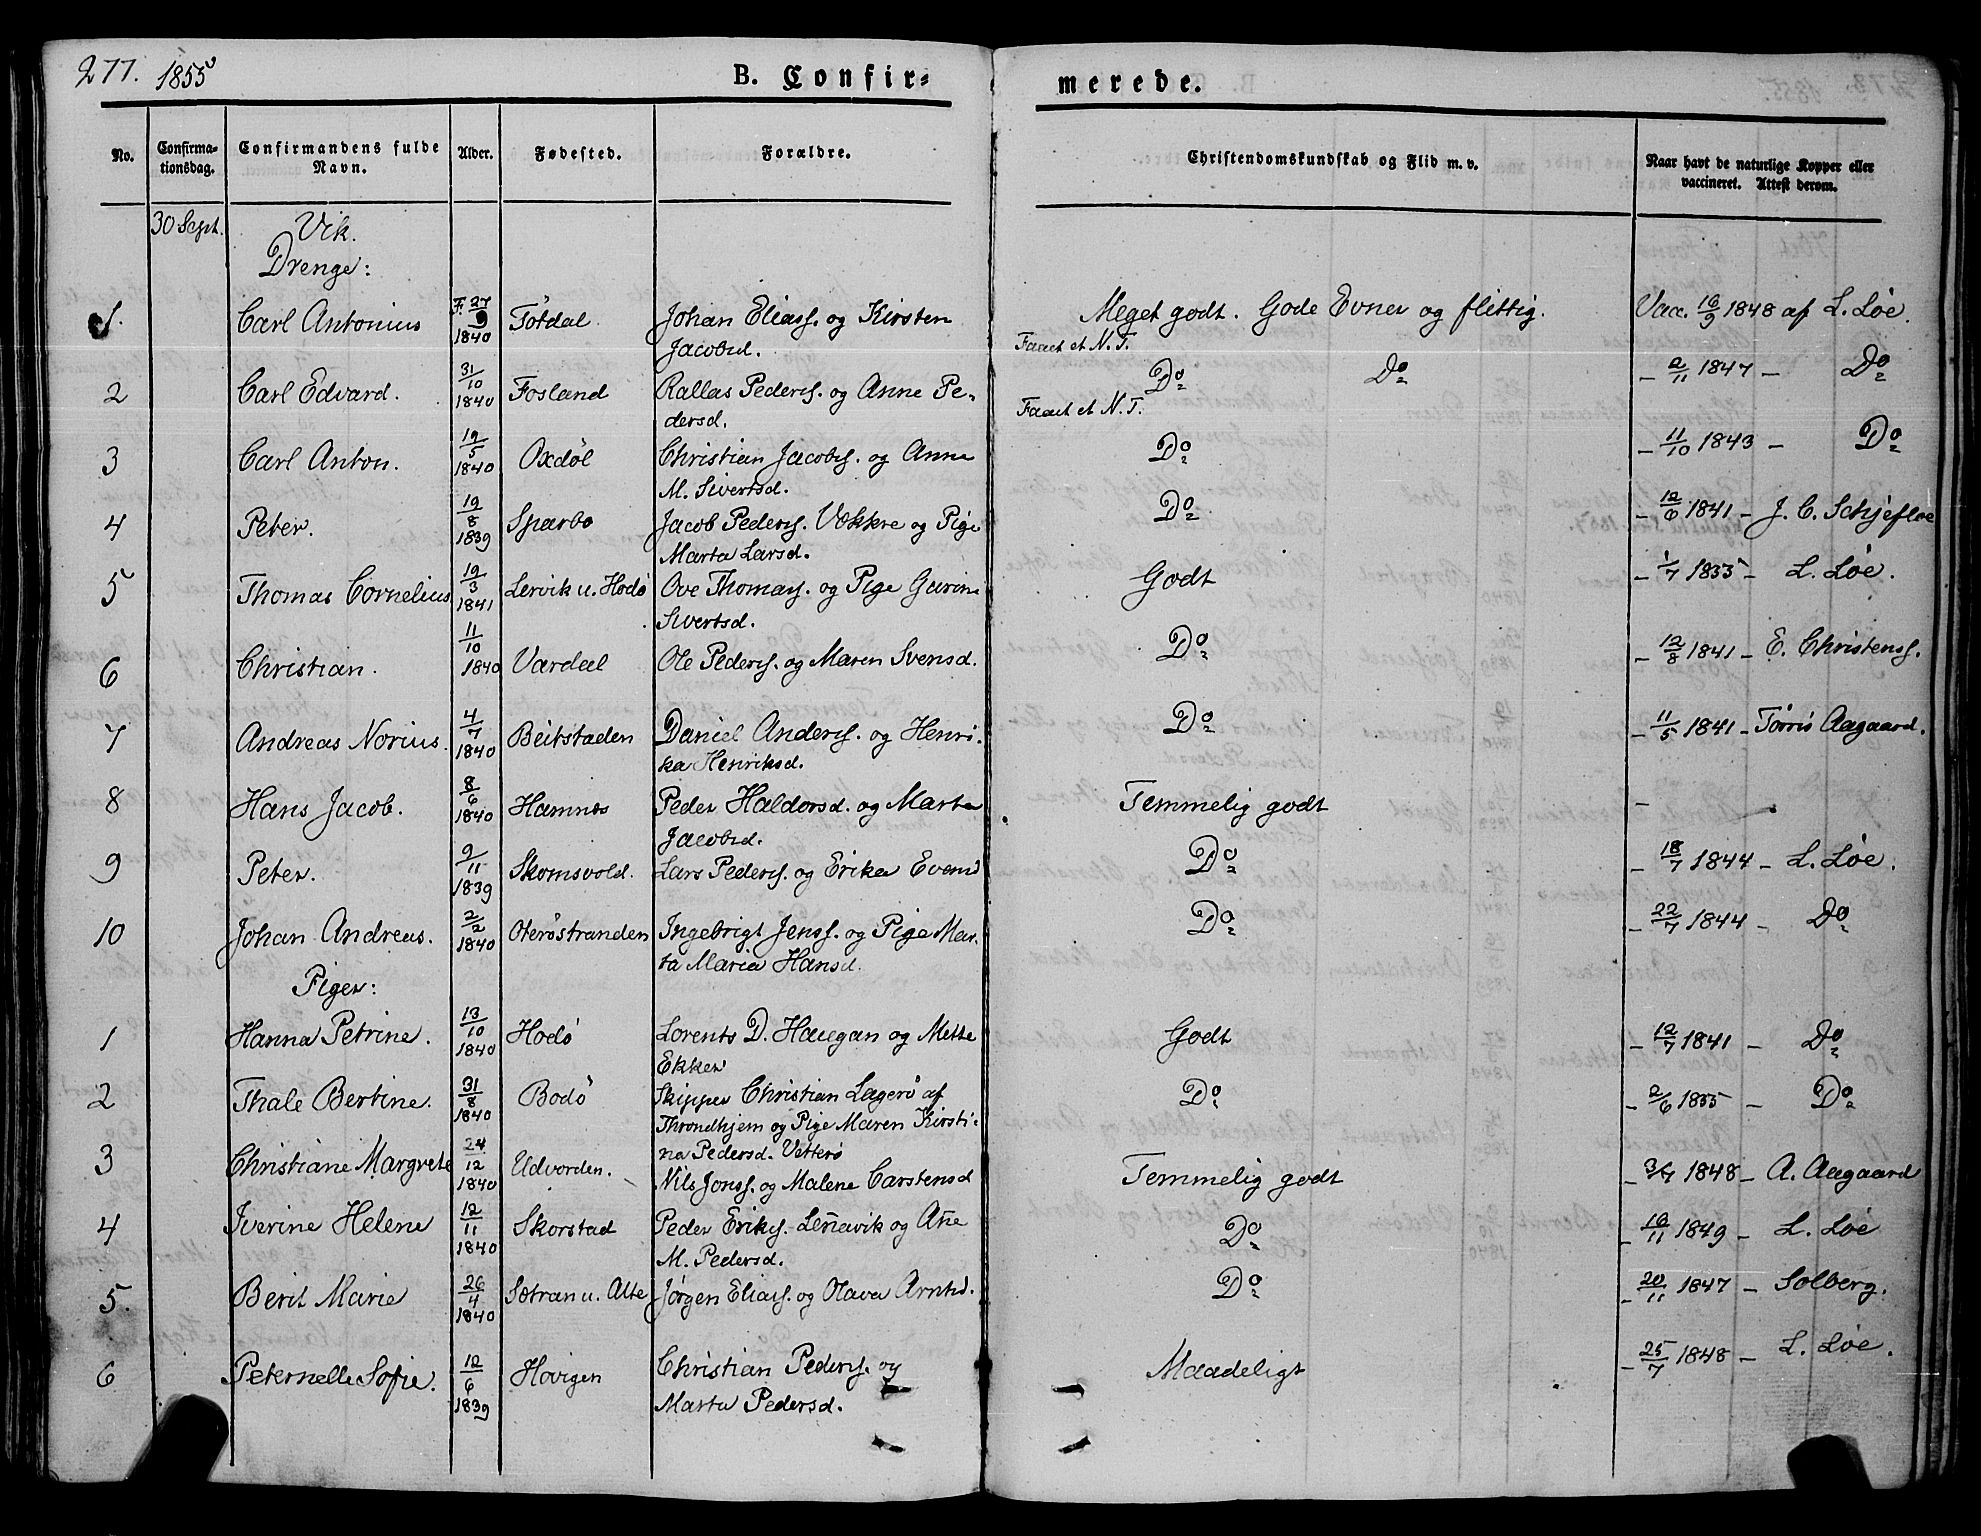 277. 1855
B. Confir= merede.
No. Confirma-tionsdag. Confirmandens fulde Navn. Alder. Fødested. Forældre. Christendomskundskab og Flid m. v. Naar havt de naturlige Kopper eller vaccineret. Attest derom.
30 Sept. Vik.
Drenge:
1. Carl Antonius F. 27/9 1840 Totdal Johan Eliass. og Kirsten Meget godt. Gode Evner og flittig. Vacc. 16/9 1848 af L. Löe.
Jacobsd. Faaet et N. T.
2 Carl Edvard. 31/10 1840 Fosland Rallas Peders. og Anne Pe- Do Do - 2/11 1847 - Do
dersd. Faaet et N. T.
3 Carl Anton. 19/5 1840 Oxdöl Christian Jacobs. og Anne Do - 11/10 1843 - Do
M. Sivertsd.
4 Peter. 19/8 1839 Sparbo Jacob Peders. Vekkre og Pige Do - 12/6 1841 - J. C. Schjefloe
Marta Larsd.
5 Thomas Cornelius 19/3 1841 Lervik u. Hodö Ove Thomas. og Pige Gurine Godt - 1/7 1855 - L. Löe.
Sivertsd.
6 Christian. 11/10 1840 Vardal Ole Peders. og Maren Svensd. Do - 12/8 1841 - E. Christens.
7 Andreas Norius. 4/7 1840 Beitstaden Daniel Anders. og Henri- Do - 11/5 1841 - Törris Aagaard.
ka Henriksd.
8 Hans Jacob. 8/6 1840 Hamnes Peder Haldorsd. og Marta Temmelig godt -
Jacobsd.
9 Peter. 9/11 1839 Skomsvold. Lars Peders. og Erika Evensd Do - 18/7 1844 - L. Löe.
10 Johan Andreas. 2/2 1840 Oteröstranden Ingebrigt Jenss. og Pige Mar- Do - 22/7 1844 - Do
ta Maria Hansd.
Piger:
1 Hanna Petrine. 13/10 1840 Hodö Lorents D. Haugan og Mette Godt - 12/7 1841 - Do
Ekker
2 Thale Bertine. 31/8 1840 Bodö Skipper Christian Lagerö af Do - 2/6 1855 - Do
Throndhjem og Pige Maren Kirsti-
na Pedersd. Vetterö
3 Christiane Margrete 24/12 1840 Udvorden. Nils Jonss. og Malene Carstensd Temmelig godt 1848 - A. Aagaard
4 Iverine Helene 12/11 1840 Skorstad Peder Eriks. Leñavik og Añe Do - 16/11 1849 - L. Löe
M. Pedersd.
5. Berit Marie 26/4 1840 Sætran u. Alte Jørgen Eliass. og Olava Arntsd. Do - 20/11 1847 - Solberg.
6 Peternelle Sofie. 12/6 1839 Hovigen Christian Peders. og Maadeligt - 25/7 1848 - L. Löe.
Marta Pedersd.